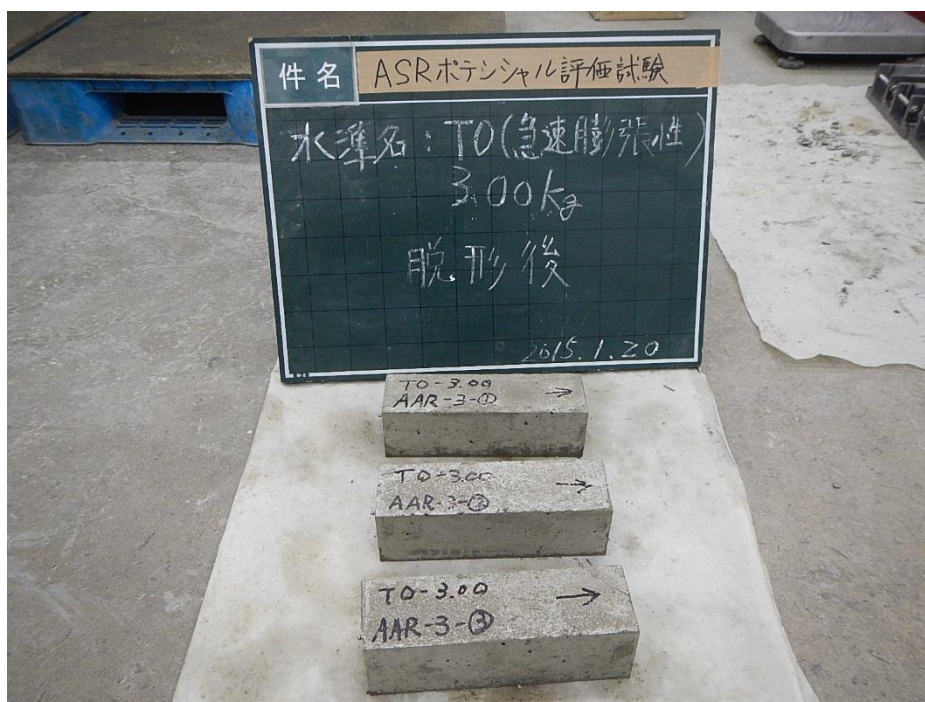 件名 ASRポテンシャル評価試験
水準名：TO(急速膨張性)
3.00kg
脱形後
2015.1.20
TO-3.00
AAR-3-①
TO-3.00
AAR-3-②
TO-3.00
AAR-3-③